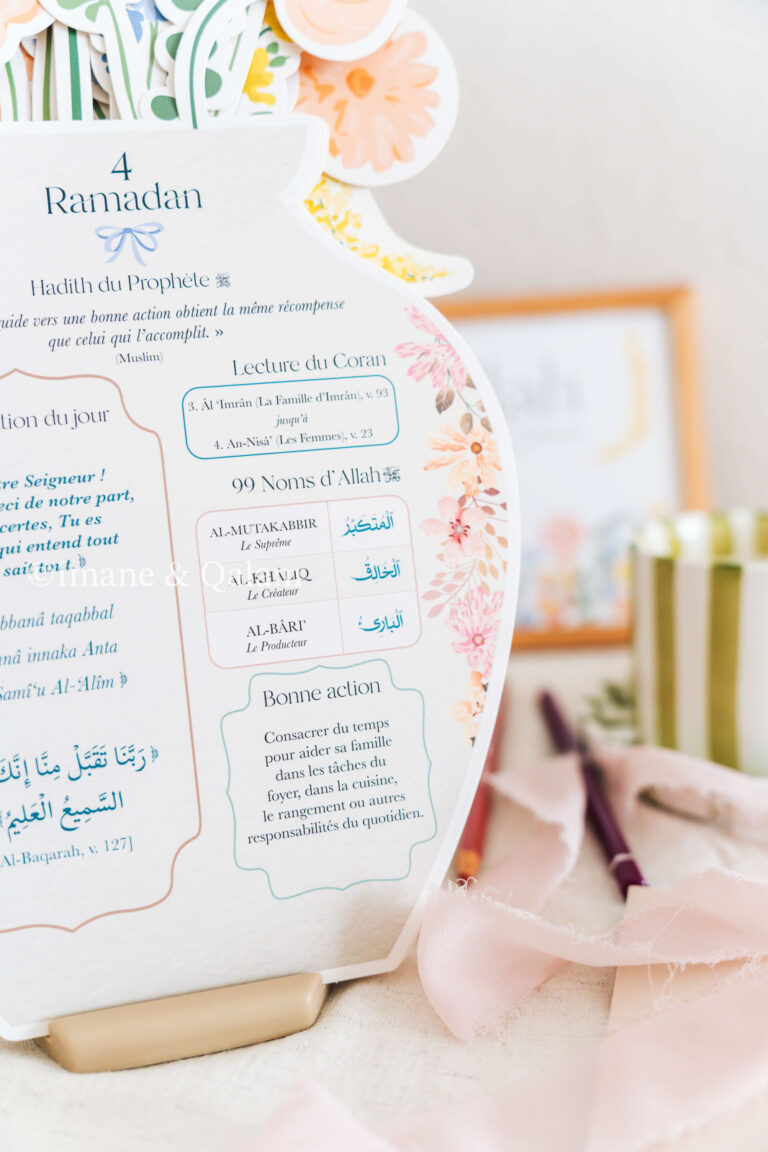 4
Ramadan
Hadith du Prophète ﷺ
guide vers une bonne action obtient la même récompense
que celui qui l'accomplit. »
(Muslim)
tion du jour
tre Seigneur !
ceci de notre part,
certes, Tu es
qui entend tout
sait tout. ﴿
bbanâ taqabbal
nnâ innaka Anta
Samî‘u Al-‘Alîm ﴿
﴿ رَبَّنَا تَقَبَّلْ مِنَّا إِنَّكَ
السَّمِيعُ الْعَلِيمُ
Al-Baqarah, v. 127]
Lecture du Coran
3. Âl ‘Imrân (La Famille d'Imrân), v. 93
jusqu'à
4. An-Nisâ' (Les Femmes), v. 23
99 Noms d'Allah ﷻ
AL-MUTAKABBIR
Le Suprême
اَلْمُتَكَبِّرُ
AL-KHALIQ
Le Créateur
اَلْخَالِقُ
AL-BÂRI'
Le Producteur
اَلْبَارِئُ
Bonne action
Consacrer du temps
pour aider sa famille
dans les tâches du
foyer, dans la cuisine,
le rangement ou autres
responsabilités du quotidien.
©Imane & Qalam